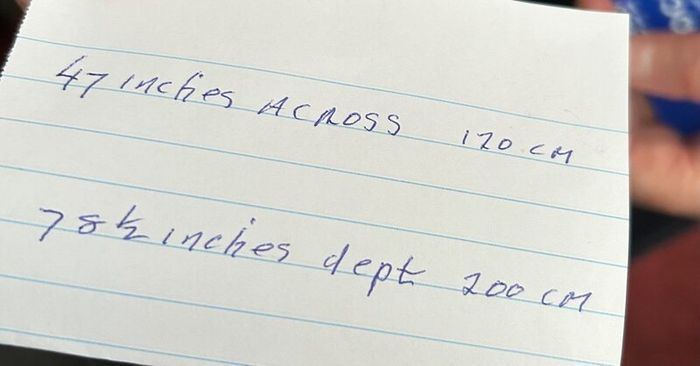 47 inches ACROSS 120 CM
78½ inches dept 200 CM